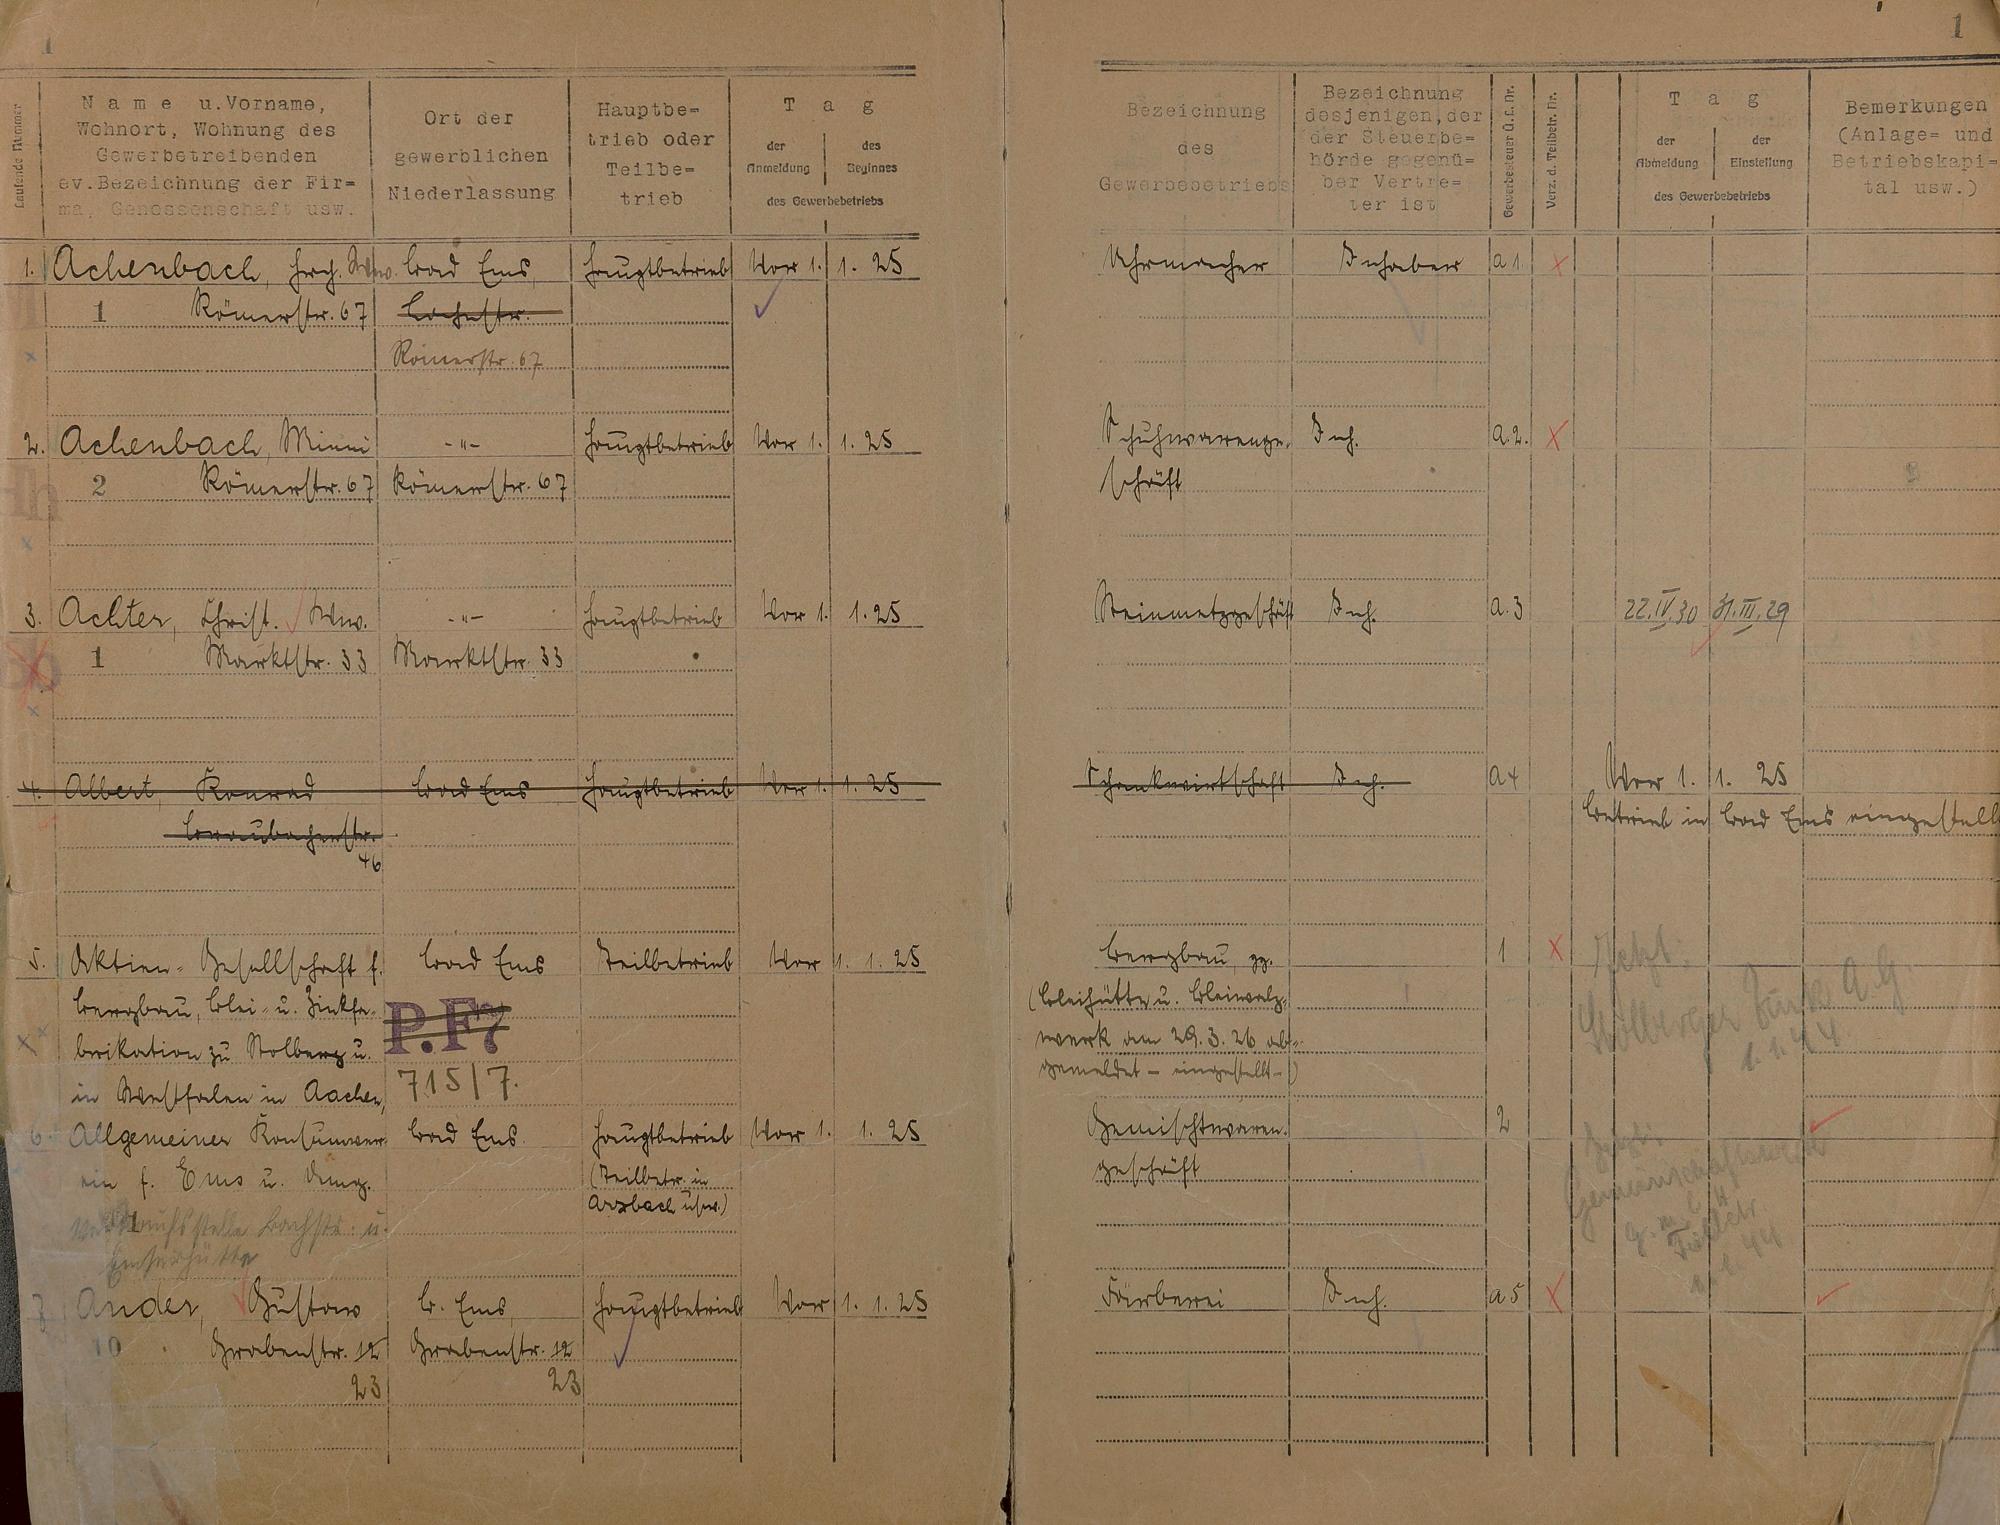 1
1
Laufende Nummer
N a m e u. Vorname,
Wohnort, Wohnung des
Gewerbetreibenden
ev. Bezeichnung der Fir=
ma, Genossenschaft usw.
Ort der
gewerblichen
Niederlassung
Hauptbe=
trieb oder
Teilbe=
trieb
T a g
der
Anmeldung
des
Beginnes
des Gewerbebetriebs
Bezeichnung
des
Gewerbebetriebs
Bezeichnung
desjenigen, der
der Steuerbe=
hörde gegenü=
ber Vertre=
ter ist
Gewerbesteuer Ü.L. Nr.
Verz. d. Teilbetr. Nr.
T a g
der
Abmeldung
der
Einstellung
des Gewerbebetriebs
Bemerkungen
(Anlage= und
Betriebskapi=
tal usw.)
1. Achenbach, Hrch. Ww. Bad Ems, Hauptbetrieb Vor 1. 1. 25 Uhrmacher Inhaber a 1. x
1 Römerstr. 67 Bachstr.
Römerstr. 67
2. Achenbach, Minni -"- Hauptbetrieb Vor 1. 1. 25 Schuhwarenge- Inh. a.2. x
2 Römerstr. 67 Römerstr. 67 schäft
3. Achter, Christ. Ww. -"- Hauptbetrieb Vor 1. 1. 25 Steinmetzgeschäft Inh. a.3 22.IV.30 31.III.29
1 Marktstr. 33 Marktstr. 33
4. Albert, Konrad Bad Ems Hauptbetrieb Vor 1. 1. 25 Schankwirtschaft Inh. a 4 Vor 1. 1. 25
Braubacherstr. Betrieb in Bad Ems eingestellt
46
5. Aktien-Gesellschaft f. Bad Ems Teilbetrieb Vor 1. 1. 25 Bergbau, 1 x Jetzt:
Bergbau, Blei- u. Zinkfa- P.F. 7 (Bleihütte u. Bleiwalz- Stolberger Zink A.G.
brikation zu Stolberg u. werk am 29. 3. 26 ab- 1.1.44
in Westfalen in Aachen, 715/7. gemeldet - eingestellt -)
6. Allgemeiner Konsumver- Bad Ems. Hauptbetrieb Vor 1. 1. 25 Gemischtwaren- 2
ein f. Ems u. Umg. (Teilbetr. in geschäft Jetzt:
Arzbach usw.) Gemeinschaftswerk
Verkaufsstelle Bachstr. u. G.m.b.H.
Emserhütte
7. Ander, Gustav B. Ems, Hauptbetrieb Vor 1. 1. 25 Färberei Inh. a 5 x
10 Grabenstr. 12 Grabenstr. 12
23 23